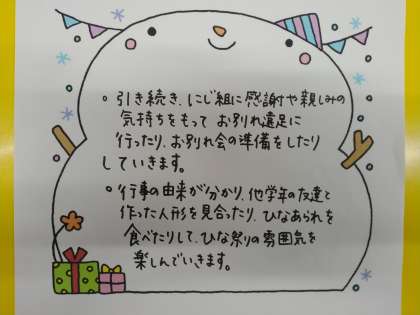 • 引き続き、にじ組に感謝や親しみの
気持ちをもって お別れ遠足に
行ったり、お別れ会の準備をしたり
していきます。
• 行事の由来が分かり、他学年の友達と
作った人形を見合ったり、ひなあられを
食べたりして、ひな祭りの雰囲気を
楽しんでいきます。